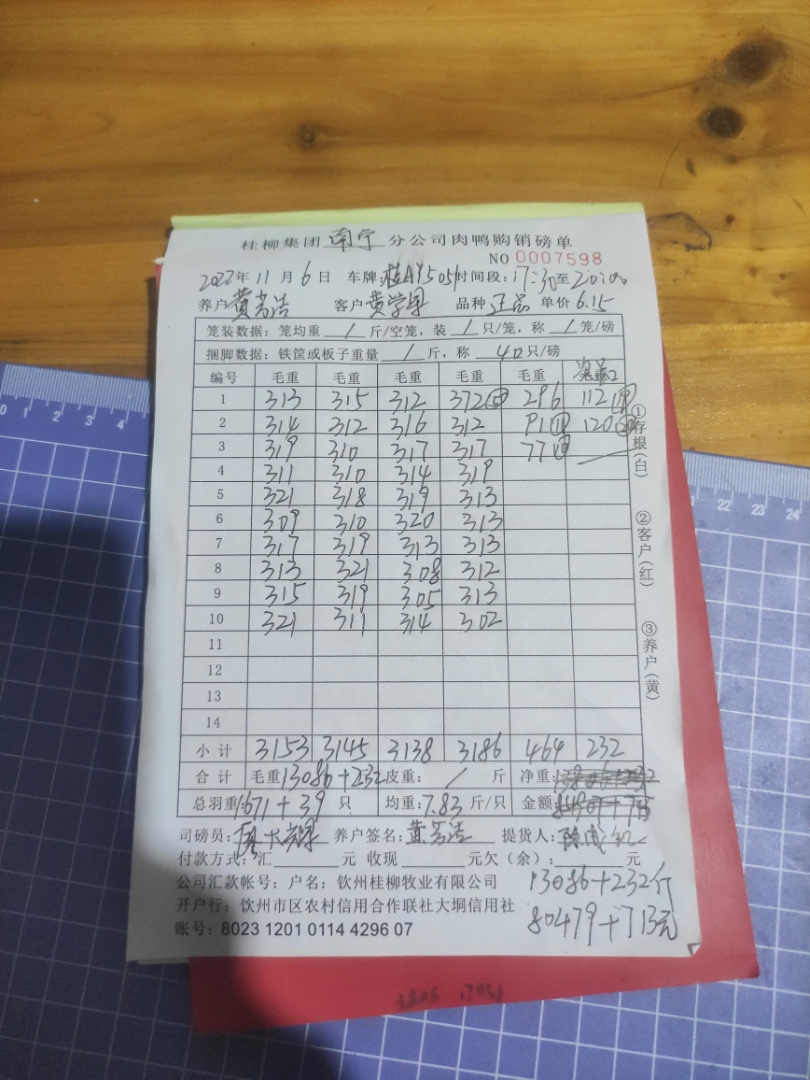 桂柳集团 南宁 分公司肉鸭购销磅单
NO 0007598
2022年11月6日 车牌:桂A 时间段:17:30至20:00
养户 黄芳浩 客户 品种 正品 单价 6.15
笼装数据:笼均重 / 斤/空笼,装 / 只/笼,称 / 笼/磅
捆脚数据:铁筐或板子重量 / 斤,称 40 只/磅
编号 毛重 毛重 毛重 毛重 毛重
1 313 315 312 372 296 112
2 314 312 316 312 91 120
3 319 310 317 317 77
4 311 310 314 319
5 321 318 319 313
6 309 310 320 313
7 317 319 313 313
8 313 321 308 312
9 315 319 305 313
10 321 311 314 302
11
12
13
14
小计 3153 3145 3138 3186 464 232
合计 毛重 13086+232 皮重: / 斤 净重:
总羽重 1671+39 只 均重:7.83 斤/只 金额
司磅员: 养户签名:黄芳浩 提货人:
付款方式:汇 元 收现 元欠(余): 元
公司汇款帐号:户名:钦州桂柳牧业有限公司
13086+232斤
开户行:钦州市区农村信用合作联社大垌信用社
80479+713元
账号:8023 1201 0114 4296 07
①存根(白)
②客户(红)
③养户(黄)
0 1 2 3
22 23 24